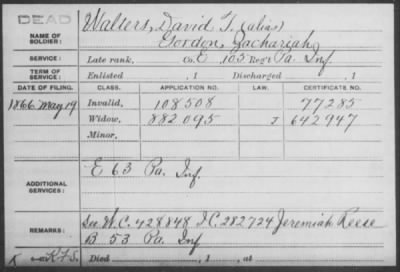 DEAD
NAME OF SOLDIER: Walters, David T. (alias)
Gordon, Zachariah
SERVICE: Late rank, Co. E 105 Reg't Pa. Inf.
TERM OF SERVICE: Enlisted , 1 Discharged , 1
DATE OF FILING. CLASS. APPLICATION NO. CERTIFICATE NO.
1866 May 19 Invalid, 108508 77285
Widow, 882095 J 642947
Minor,
ADDITIONAL SERVICES: E 63 Pa. Inf.
REMARKS: See W.C. 428848 I.C. 282724 Jeremiah Reese
B. 53 Pa Inf
K Died , 1 , at